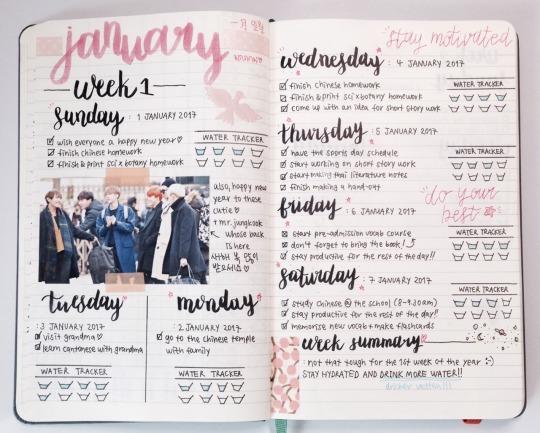 january
一月 일월
WEEK 1
sunday : 1 JANUARY 2017
wish everyone a happy new year♡
finish chinese homework
finish & print sci x botany homework
WATER TRACKER
also, happy new
year to these
cutie ♡
+ mr. jungkook
whose back
is here
새해 복 많이
받으세요♡
tuesday
3 JANUARY 2017
visit grandma♡
learn cantonese with grandma
WATER TRACKER
monday
2 JANUARY 2017
go to the chinese temple
with family
WATER TRACKER
stay motivated
wednesday : 4 JANUARY 2017
finish chinese homework
finish & print sci x botany homework
come up with an idea for short story work
WATER TRACKER
thursday : 5 JANUARY 2017
have the sports day schedule
start working on short story work
start making thai literature notes
finish making a hand-out
WATER TRACKER
do your
best
friday : 6 JANUARY 2017
start pre-admission vocab course
don't forget to bring the book!
stay productive for the rest of the day!!
WATER TRACKER
saturday : 7 JANUARY 2017
study chinese @ the school (8-9.30am)
stay productive for the rest of the day!!
memorise new vocab + make flashcards
WATER TRACKER
week summary
: not that tough for the 1st week of the year :-)
STAY HYDRATED AND DRINK MORE WATER!!